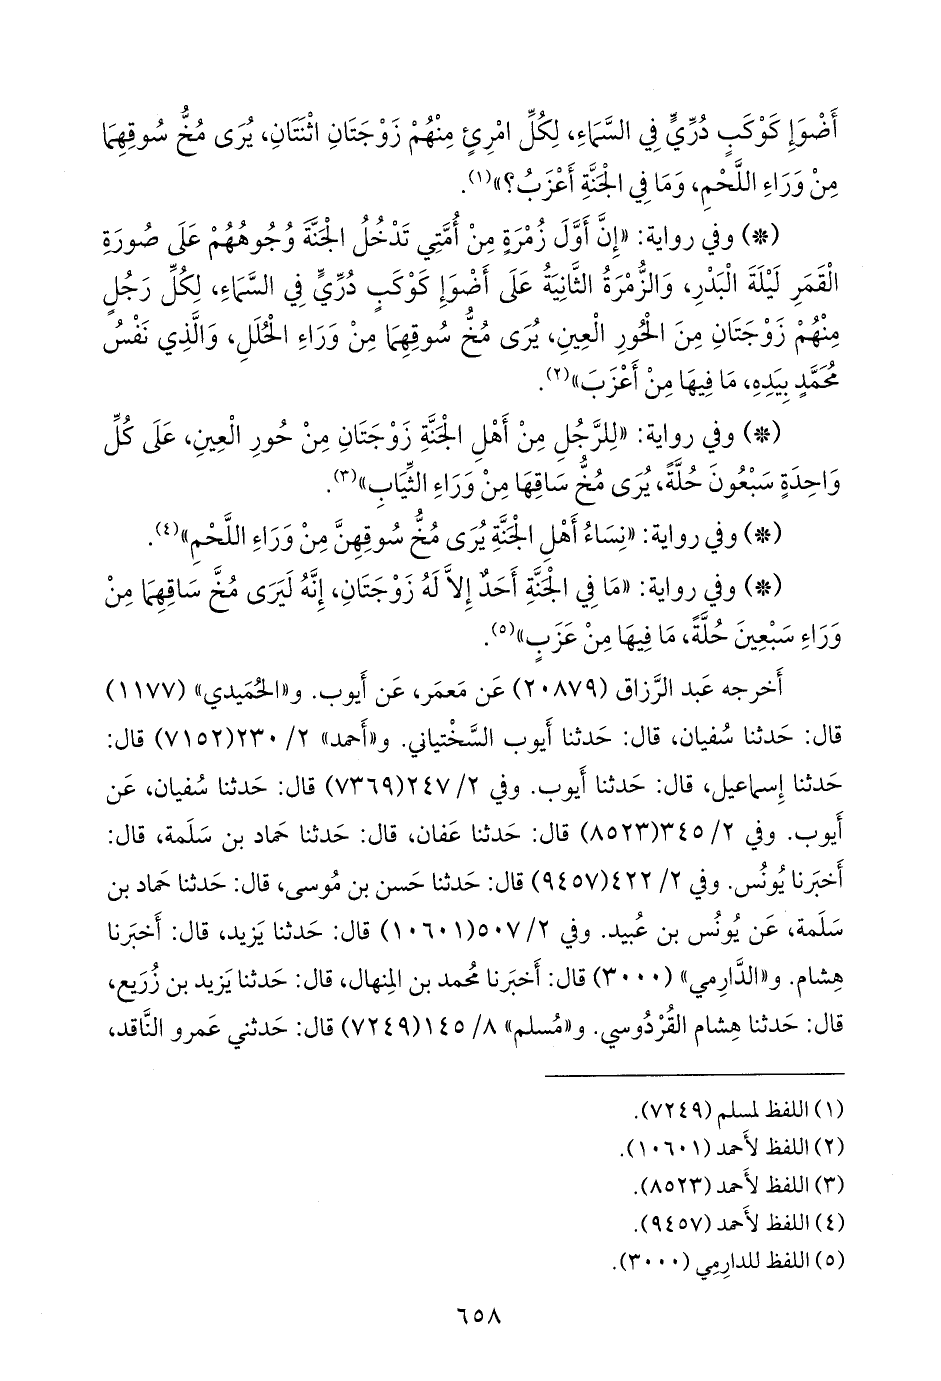 أَضْوَإِ كَوْكَبٍ دُرِّيٍّ فِي السَّمَاءِ، لِكُلِّ امْرِئٍ مِنْهُمْ زَوْجَتَانِ اثْنَتَانِ، يُرَى مُخُّ سُوقِهِمَا
مِنْ وَرَاءِ اللَّحْمِ، وَمَا فِي الْجَنَّةِ أَعْزَبُ؟»(١).
(*) وفي رواية: «إِنَّ أَوَّلَ زُمْرَةٍ مِنْ أُمَّتِي تَدْخُلُ الْجَنَّةَ وُجُوهُهُمْ عَلَى صُورَةِ
الْقَمَرِ لَيْلَةَ الْبَدْرِ، وَالزُّمْرَةُ الثَّانِيَةُ عَلَى أَضْوَإِ كَوْكَبٍ دُرِّيٍّ فِي السَّمَاءِ، لِكُلِّ رَجُلٍ
مِنْهُمْ زَوْجَتَانِ مِنَ الْحُورِ الْعِينِ، يُرَى مُخُّ سُوقِهِمَا مِنْ وَرَاءِ الْحُلَلِ، وَالَّذِي نَفْسُ
مُحَمَّدٍ بِيَدِهِ، مَا فِيهَا مِنْ أَعْزَبَ»(٢).
(*) وفي رواية: «لِلرَّجُلِ مِنْ أَهْلِ الْجَنَّةِ زَوْجَتَانِ مِنْ حُورِ الْعِينِ، عَلَى كُلِّ
وَاحِدَةٍ سَبْعُونَ حُلَّةً، يُرَى مُخُّ سَاقِهَا مِنْ وَرَاءِ الثِّيَابِ»(٣).
(*) وفي رواية: «نِسَاءُ أَهْلِ الْجَنَّةِ يُرَى مُخُّ سُوقِهِنَّ مِنْ وَرَاءِ اللَّحْمِ»(٤).
(*) وفي رواية: «مَا فِي الْجَنَّةِ أَحَدٌ إِلاَّ لَهُ زَوْجَتَانِ، إِنَّهُ لَيَرَى مُخَّ سَاقِهِمَا مِنْ
وَرَاءِ سَبْعِينَ حُلَّةً، مَا فِيهَا مِنْ عَزَبٍ»(٥).
أَخرجه عَبد الرَّزاق (٢٠٨٧٩) عَن مَعمَر، عَن أَيوب. و«الحُمَيدي» (١١٧٧)
قال: حَدثنا سُفيان، قال: حَدثنا أَيوب السَّخْتياني. و«أَحمد» ٢/ ٢٣٠(٧١٥٢) قال:
حَدثنا إِسماعيل، قال: حَدثنا أَيوب. وفي ٢/ ٢٤٧(٧٣٦٩) قال: حَدثنا سُفيان، عَن
أَيوب. وفي ٢/ ٣٤٥(٨٥٢٣) قال: حَدثنا عَفان، قال: حَدثنا حَماد بن سَلَمة، قال:
أَخبَرنا يُونُس. وفي ٢/ ٤٢٢(٩٤٥٧) قال: حَدثنا حَسن بن مُوسى، قال: حَدثنا حَماد بن
سَلَمة، عَن يُونُس بن عُبيد. وفي ٢/ ٥٠٧(١٠٦٠١) قال: حَدثنا يَزيد، قال: أَخبَرنا
هِشام. و«الدَّارِمي» (٣٠٠٠) قال: أَخبَرنا مُحمد بن المِنهال، قال: حَدثنا يَزيد بن زُرَيع،
قال: حَدثنا هِشام القُرْدُوسي. و«مُسلم» ٨/ ١٤٥(٧٢٤٩) قال: حَدثني عَمرو النَّاقد،
(١) اللفظ لمسلم (٧٢٤٩).
(٢) اللفظ لأَحمد (١٠٦٠١).
(٣) اللفظ لأَحمد (٨٥٢٣).
(٤) اللفظ لأَحمد (٩٤٥٧).
(٥) اللفظ للدارِمِي (٣٠٠٠).
٦٥٨